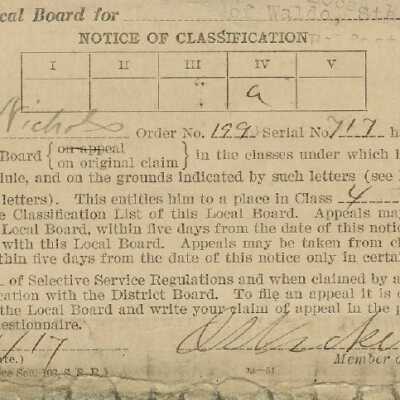 cal Board for Waldo,
NOTICE OF CLASSIFICATION
I II III IV V
a
Nichols Order No. 199 Serial No. 717 h
Board { on appeal
on original claim } in the classes under which h
ule, and on the grounds indicated by such letters (see
letters). This entitles him to a place in Class 4
e Classification List of this Local Board. Appeals may
Local Board, within five days from the date of this notice
with this Local Board. Appeals may be taken from cl
thin five days from the date of this notice only in certai
. of Selective Service Regulations and when claimed by a
cation with the District Board. To file an appeal it is o
the Local Board and write your claim of appeal in the p
estionnaire.
/17
ate.) Member o
ce Sec. 103, S. S. R.)